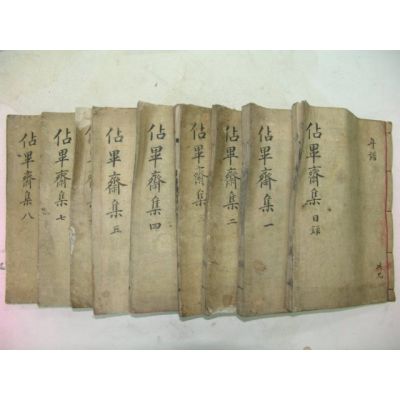 年譜
共九
佔畢齋集目錄
佔畢齋集一
佔畢齋集二
佔畢齋集三
佔畢齋集四
佔畢齋集五
佔畢齋集七
佔畢齋集八